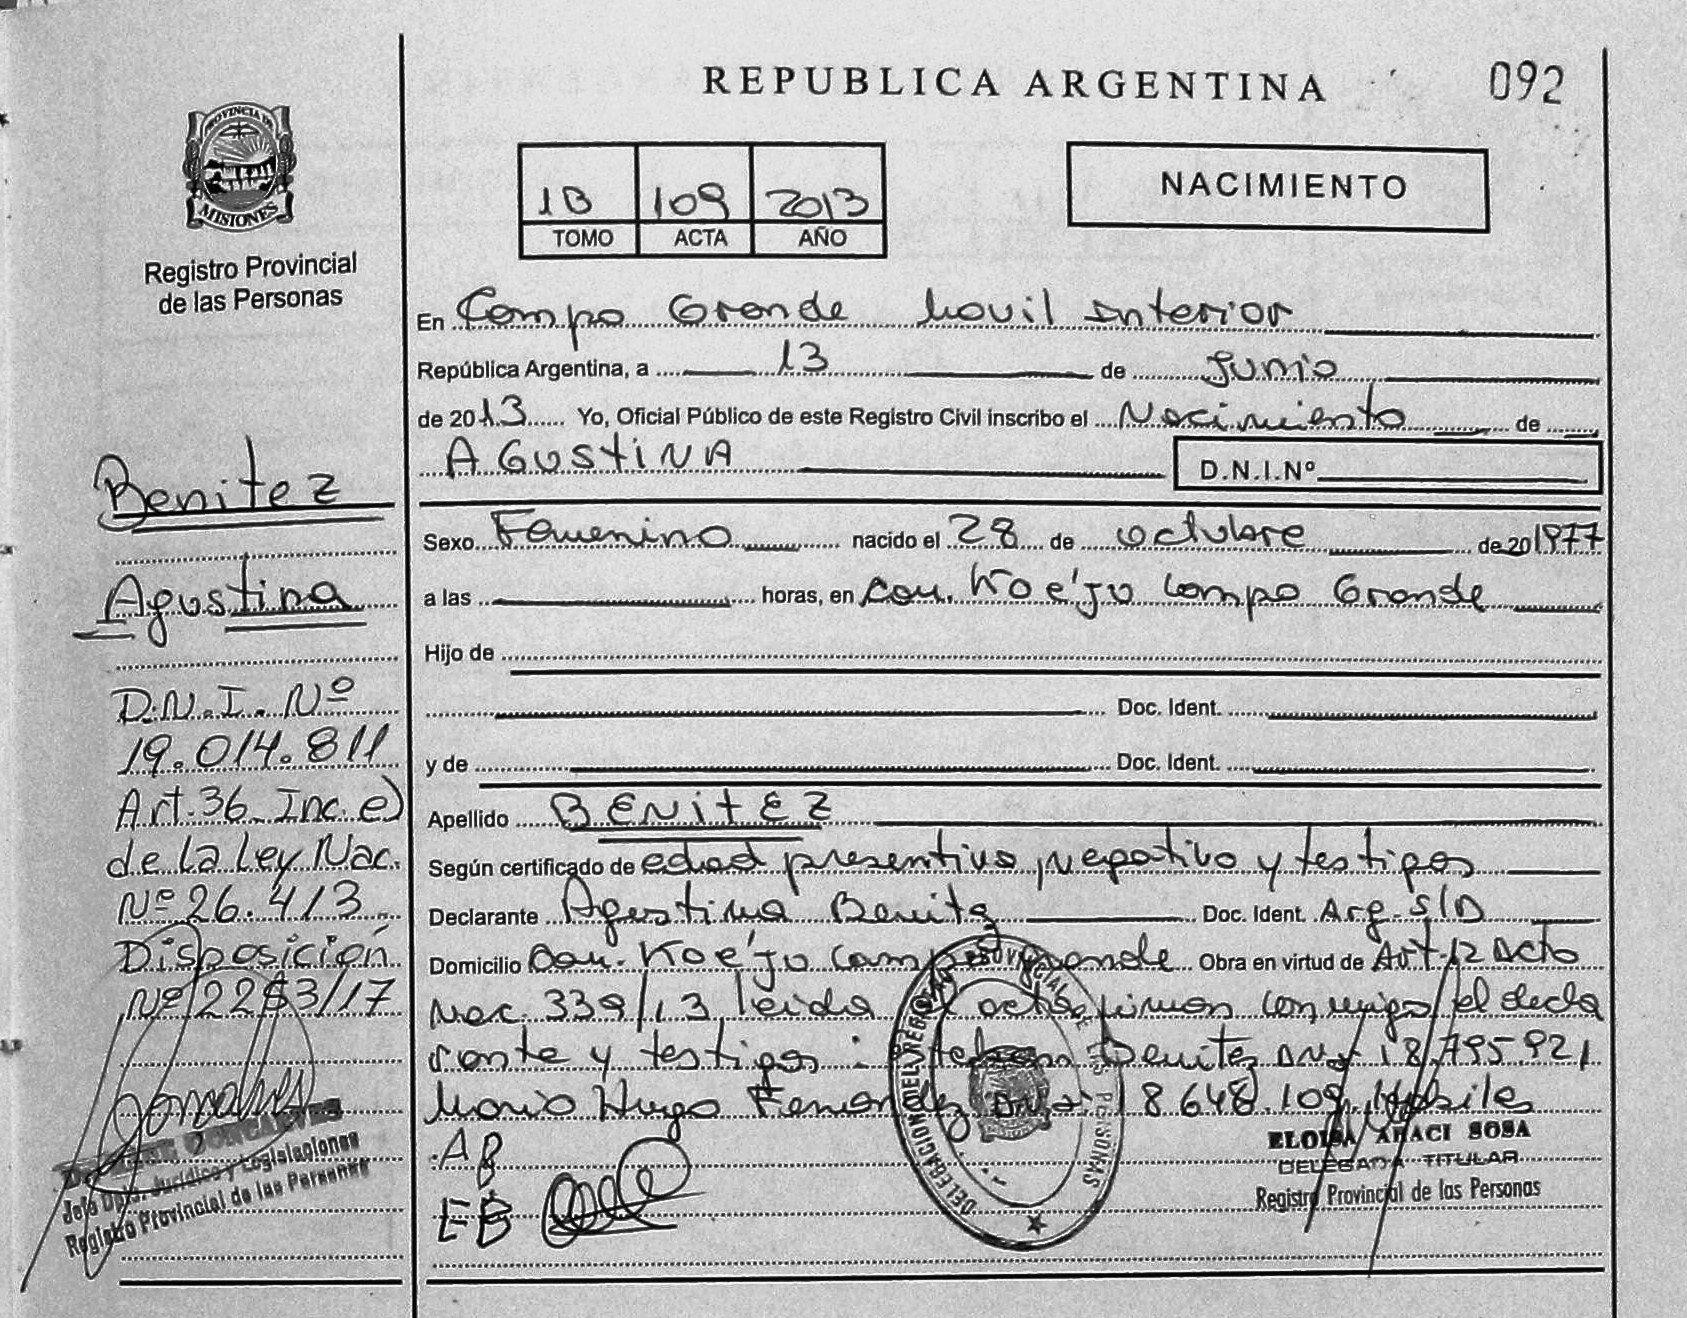 REPUBLICA ARGENTINA
092
PROVINCIA DE
MISIONES
Registro Provincial
de las Personas
1B 109 2013
TOMO ACTA AÑO
NACIMIENTO
En Campo Grande Movil Interior
República Argentina, a 13 de Junio
de 2013 Yo, Oficial Público de este Registro Civil inscribo el Nacimiento de
AGUSTINA
D.N.I.Nº
Sexo Femenino nacido el 28 de octubre de 201977
a las horas, en Com. Ko e'ju Campo Grande
Hijo de
Doc. Ident.
y de Doc. Ident.
Apellido BENITEZ
Según certificado de edad presentiva, negativo y testigos
Declarante Agustina Benitez Doc. Ident. Arg. S/D
Domicilio Com. Ko e'ju Campo Grande Obra en virtud de Art. 12 Dcto
Nac. 339/13 leida el acta firman conmigo el decla
rante y testigos: Benitez DNI 18.795.921
Mario Hugo Fernandez DNI 18.648.109 Habiles
AB
EB
ELOISA ARACI SOSA
DELEGADA TITULAR
Registro Provincial de las Personas
DELEGACION DEL REGISTRO PROVINCIAL DE LAS PERSONAS
Benitez
Agustina
D.N.I. Nº
19.014.811
Art. 36 Inc. e)
de la Ley Nac.
Nº 26.413
Disposición
Nº 2253/17
GONCALVES
Jefe Dpto. Jurídico y Legislaciones
Registro Provincial de las Personas